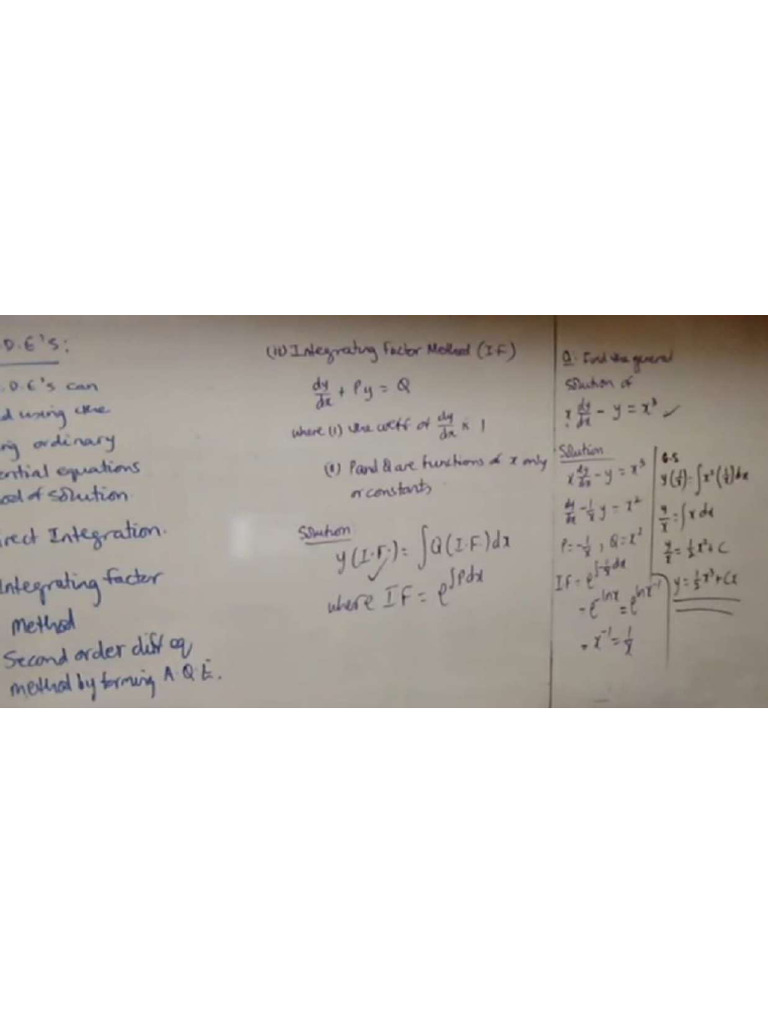 D.E's:
D.E's can
using
ordinary
equations
of solution
Integration.
Integrating factor
method
Second order diff eq
method by forming A.Q.E.
Integrating Factor Method (I.F)
dy/dx + Py = Q
where (i) the coeff of dy/dx is 1
(ii) P and Q are functions of x only
or constants
Solution
y(I.F.) = ∫Q(I.F)dx
where IF = e^∫Pdx
Q. Find the general
Solution of
x dy/dx - y = x³
Solution
x dy/dx - y = x³
dy/dx - 1/x y = x²
P = -1/x, Q = x²
IF = e^∫-1/x dx
= e^-lnx = e^lnx⁻¹
= x⁻¹ = 1/x
G.S
y(1/x) = ∫x²(1/x)dx
y/x = ∫x dx
y/x = ½x² + C
y = ½x³ + Cx